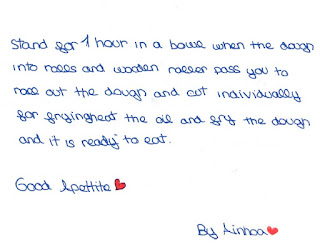 Stand for 1 hour in a bowe when the dough
into rolls and wooden roller pass you to
roll out the dough and cut individually
for fryingheat the oil and fry the dough
and it is ready to eat.
Good Apettite
By Ainhoa